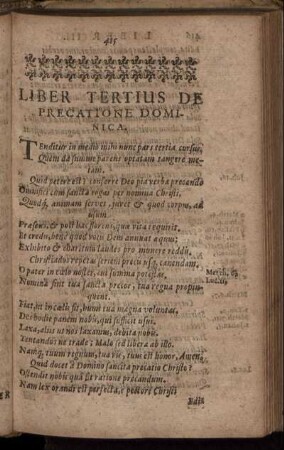 LIBER TERTIUS DE
PRECATIONE DOMI-
NICA.
TEnditur in medio mihi nunc pars tertia cursu,
Quem da summe parens optatam tangere metam.
Quid petere est? conferre Deo pia verba precando
Omnisci cum sancta rogas per nomina Christi,
animam servet, juvet & quod corpus, ad
usum
Præsens, & post hac florens, qua vita requirit,
Et credens, hoc quod voti Deus annuat æquus;
Exhibito & charitum laudes pro munere reddis.
Christiados repetas seriem precis usq; canendam,
O pater in cœlo noster, cui summa potestas, Matth. 6.
Nomina sint tua sancta precor, tua regna propin- Luc. 11.
quent.
Fiat, ut in cælis sic, humi tua magna voluntas,
Da hodie panem nobis, qui sufficit usui,
Laxa, aliis ut nos laxamus, debita nobis.
Tentandũ ne trade; Malo sed libera ab illo.
Namq; tuum regnum, tua vis, tuus est honor, Amen.
Quid docet à Domino sancita precatio Christo?
Ostendit nobis quæ sit ratione precandum.
Nam lex orandi est perfecta, è pectore Christi
Edit